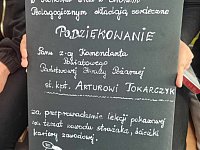 Pedagogicznym składają serdeczne
PODZIĘKOWANIE
Panu z-cy Komendanta
Powiatowego
Państwowej Straży Pożarnej
st. kpt. ARTUROWI TOKARCZYK
za przeprowadzenie lekcji pokazowej
na temat zawodu strażaka, ścieżki
kariery zawodowej.